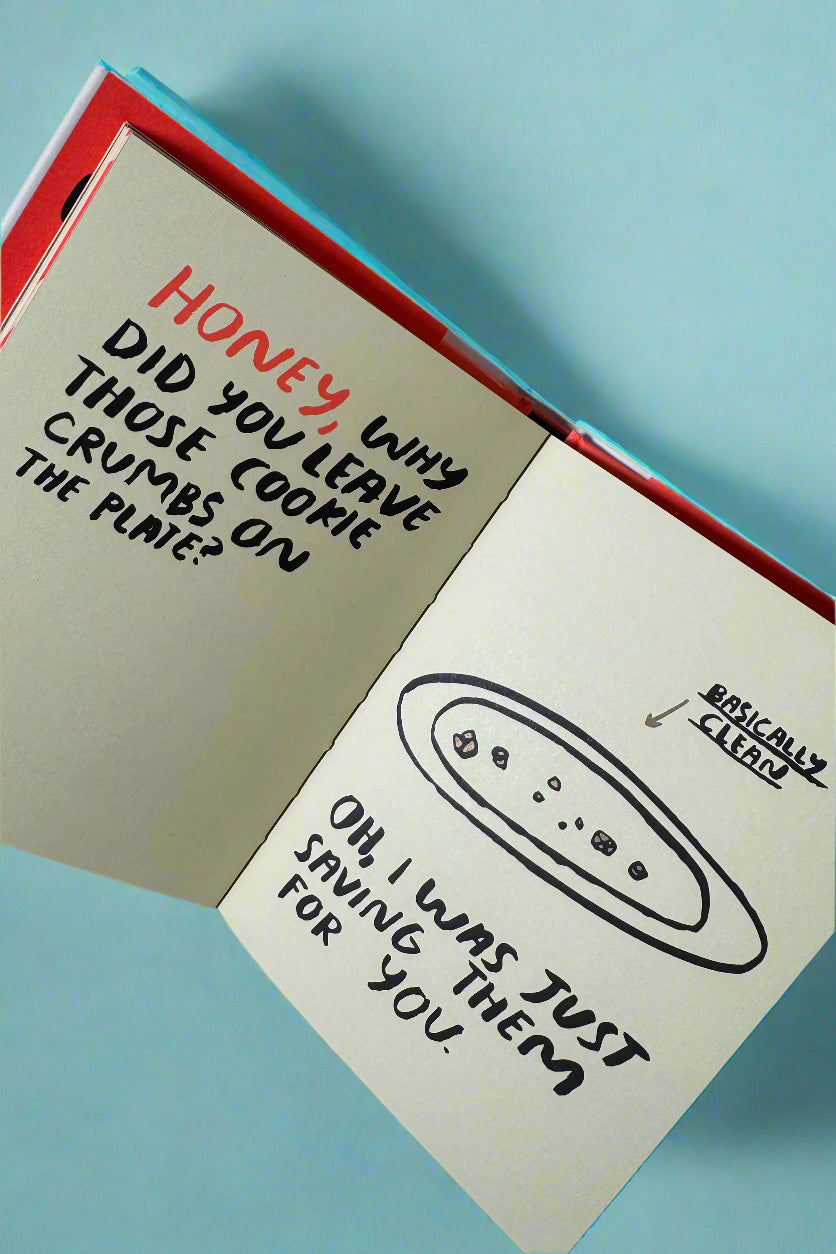 HONEY, WHY
DID YOU LEAVE
THOSE COOKIE
CRUMBS ON
THE PLATE?
BASICALLY
CLEAN
OH, I WAS JUST
SAVING THEM
FOR YOU.